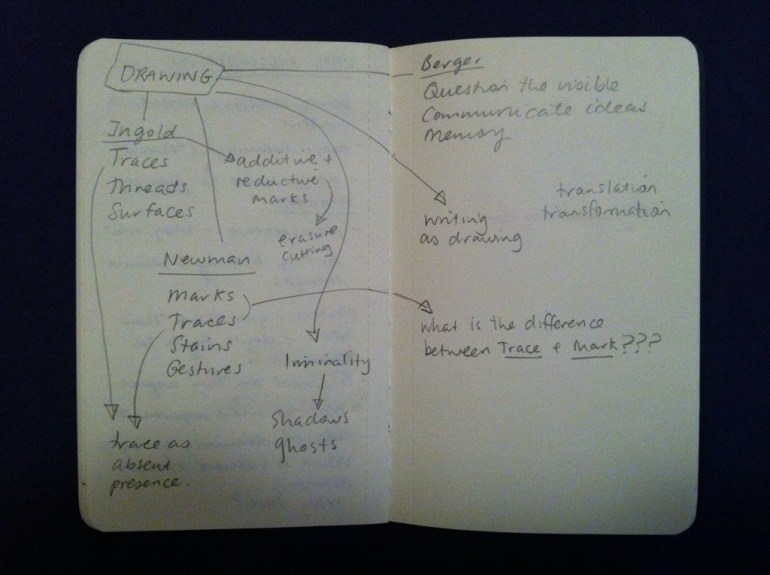 DRAWING
Ingold
Traces
Threads
Surfaces
additive +
reductive
marks
erasure
cutting
Newman
Marks
Traces
Stains
Gestures
trace as
absent
presence.
liminality
shadows
ghosts
Berger
Question the visible
Communicate ideas
Memory
writing
as drawing
translation
transformation
what is the difference
between Trace + Mark???